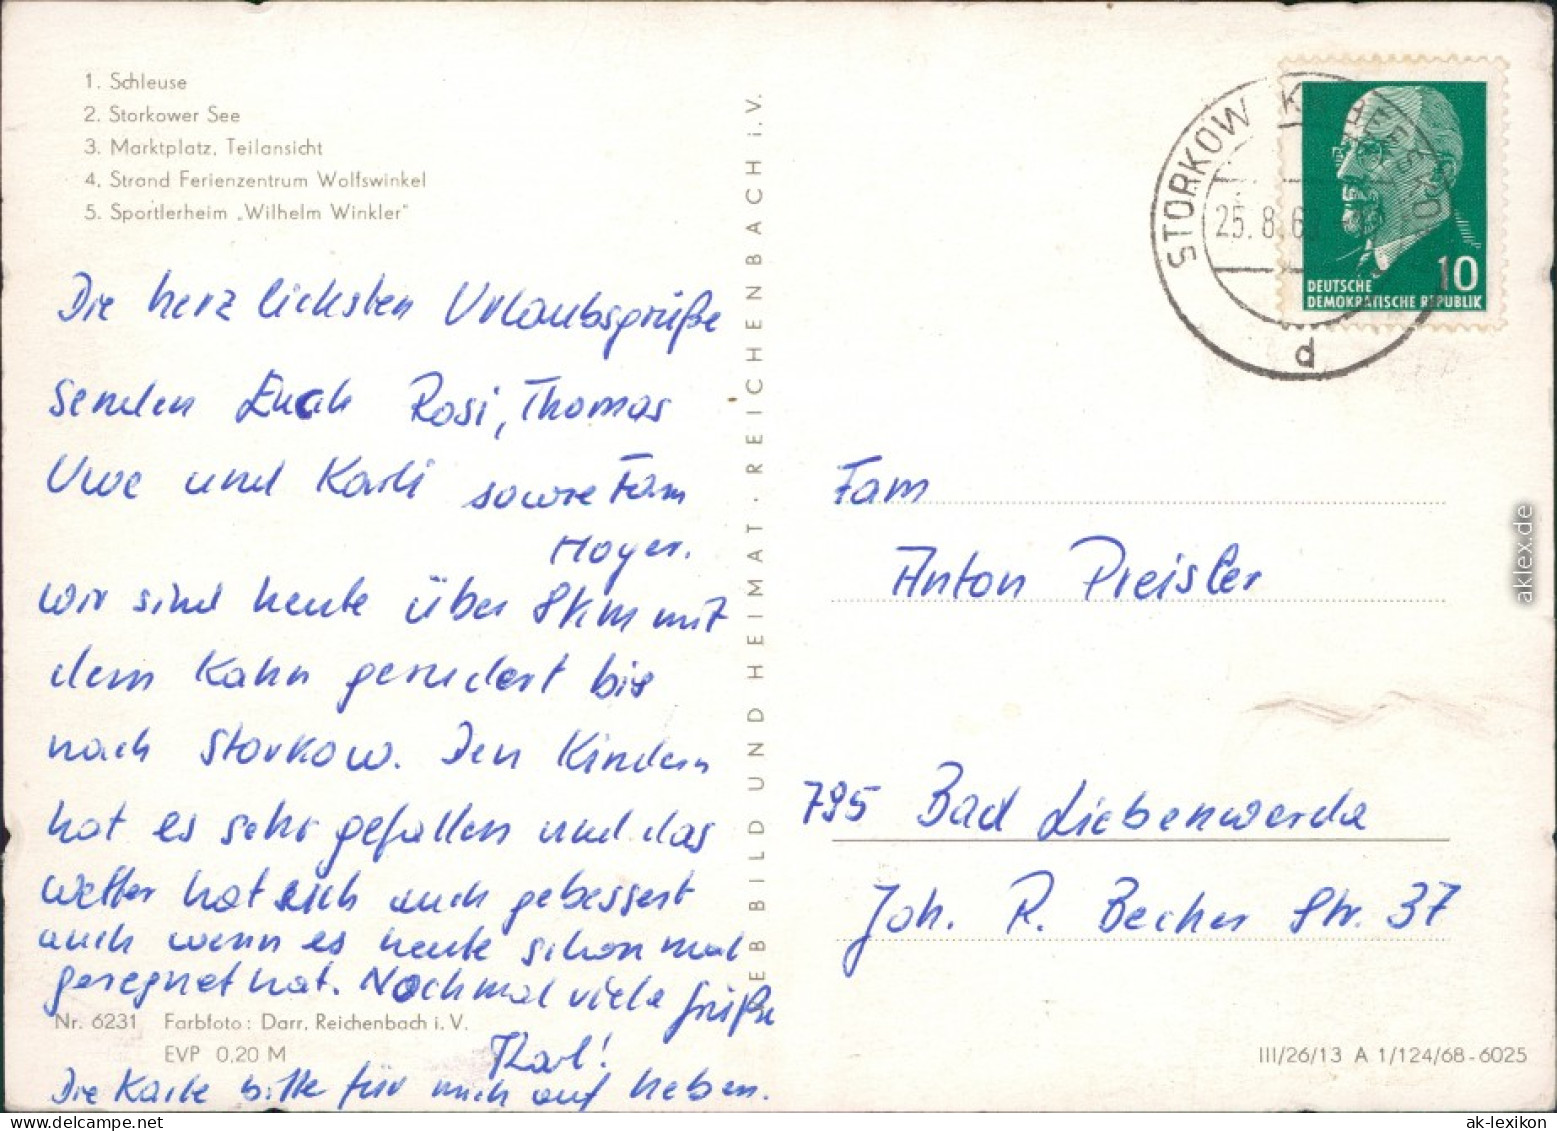 1. Schleuse
2. Storkower See
3. Marktplatz, Teilansicht
4. Strand Ferienzentrum Wolfswinkel
5. Sportlerheim „Wilhelm Winkler"
Die herzlichsten Urlaubsgrüße
senden Euch Rosi, Thomas
Uwe und Karli sowie Fam
Hoyer.
wir sind heute über 8km mit
dem Kahn gerudert bis
nach Storkow. Den Kindern
hat es sehr gefallen und das
Wetter hat sich auch gebessert
auch wenn es heute schon mal
geregnet hat. Nochmal viele Grüße
Karl!
Die Karte bitte für mich auf heben.
Nr. 6231 Farbfoto: Darr, Reichenbach i. V.
EVP 0,20 M
EB BILD UND HEIMAT · REICHENBACH i. V.
STORKOW
25. 8. 6
d
10
DEUTSCHE
DEMOKRATISCHE REPUBLIK
Fam
Anton Preisler
795 Bad Liebenwerda
Joh. R. Becher Str. 37
III/26/13 A 1/124/68-6025
aklex.de
ak-lexikon